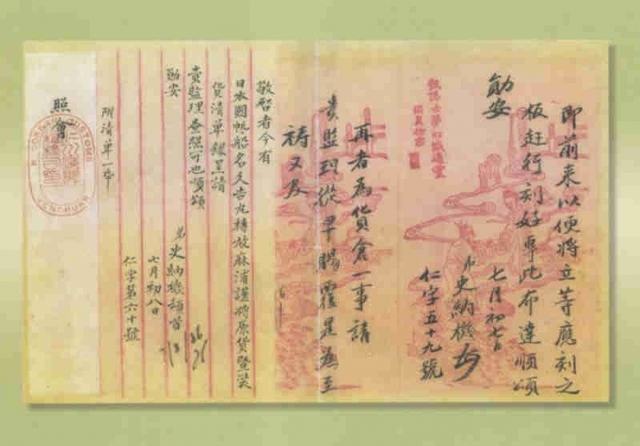 即前来以便將立等應刻之
板赶行刻好專此布達順頌
勛安
七月初七日
史納機
仁字五十九號
再者為貨倉一事請
貴監理從早賜覆是為至
禱又及
敬啓者今有
日本國帆船名久吉丸轉放麻浦謹將原貨暨裝
貨清單錄呈請
貴監理查照可也順頌
勛安
弟史納機頓首
七月初八日
仁字第六十號
附清單一本
照會
JENCHUAN